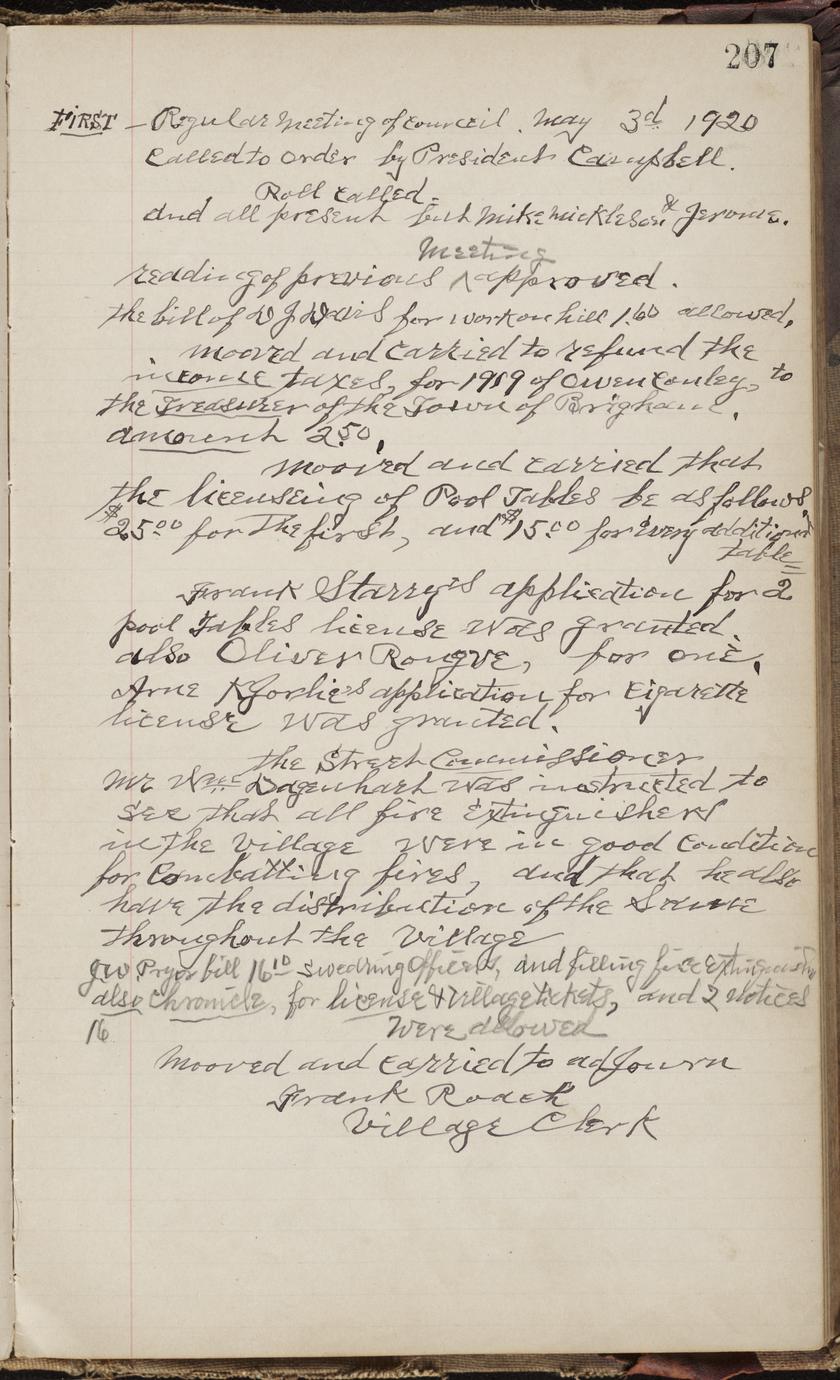 207
FiRST - Regular Meeting of council. May 3d 1920
Called to order by President Campbell.
Roll called =
and all present but Mike Mickleson & Jerome.
Meeting
reading of previous ^ approved.
the bill of W J Davis for work on hill 1.60 allowed.
Mooved and carried to refund the
income taxes, for 1919 of Owen Conley, to
the Treasurer of the Town of Brigham.
amount 2.50.
Mooved and carried that
the licenseing of Pool Tables be as follows
$25.00 for The first, and $15.00 for every additional
table =
Frank Starry's application for 2
pool Tables license was granted.
also Oliver Rongve, for one.
Arne Kjorlie's application for Cigarette
license was granted.
the Street Commissioner
Mr Wm Dagenhart was instructed to
see that all fire Extinguishers
in the Village were in good condition
for Combatting fires, and that he also
have the distribution of the Same
throughout the Village
JW Pryor bill 16 10 swearing Officers, and filling fire Extinguisher
also Chronicle, for license & Village tickets, and 2 notices
16 were allowed
Mooved and carried to adJourn
Frank Roach
Village Clerk